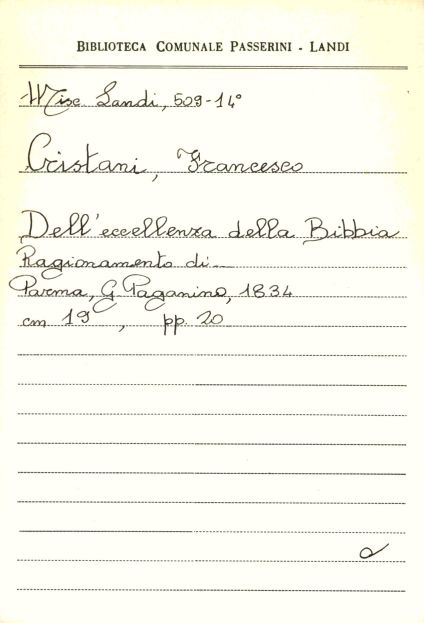 BIBLIOTECA COMUNALE PASSERINI - LANDI
Misc. Landi, 509-14°
Cristani, Francesco
Dell'eccellenza della Bibbia
Ragionamento di...
Parma, G. Paganino, 1834
cm 19, pp. 20
a